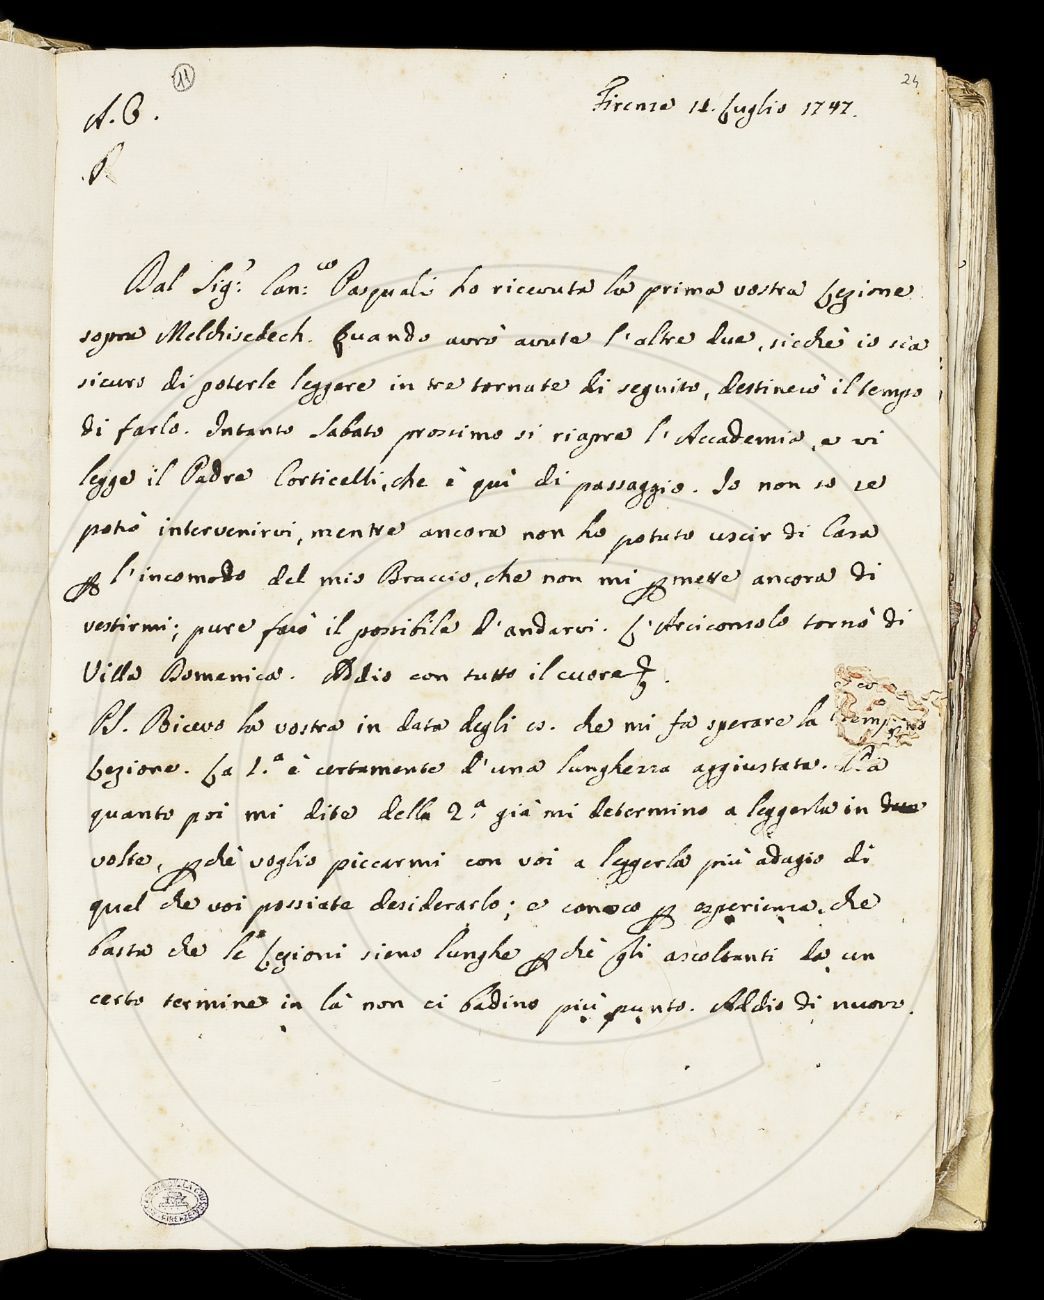 11
24
A. C.
Firenze 11. Luglio 1747.
Dal Sig.r Can.co Pasquali ho ricevuta la prima vostra Lezione
sopra Melchisedech. Quando avrò avute l'altre due, sicchè io sia
sicuro di poterle leggere in tre tornate di seguito, destinerò il tempo
di farlo. Intanto Sabato prossimo si riapre l'Accademia, e vi
legge il Padre Corticelli, che è quì di passaggio. Io non so se
potrò intervenirvi, mentre ancora non ho potuto uscir di Casa
p l'incomodo del mio Braccio, che non mi pmette ancora di
vestirmi; pure farò il possibile d'andarvi. L'Arciconsolo tornò di
Villa Domenica. Addio con tutto il cuore.
PS. Ricevo la vostra in data degli 10. che mi fa sperare la
Lezione. La 1.a è certamente d'una lunghezza aggiustata.
quanto poi mi dite della 2.a già mi determino a leggerla in due
volte, pchè voglio piccarmi con voi a leggerla più adagio di
quel che voi possiate desiderarlo; e conosco p esperienza, che
basta che le Lezioni sieno lunghe pchè gli ascoltanti da un
certo termine in là non ci badino più punto. Addio di nuovo.